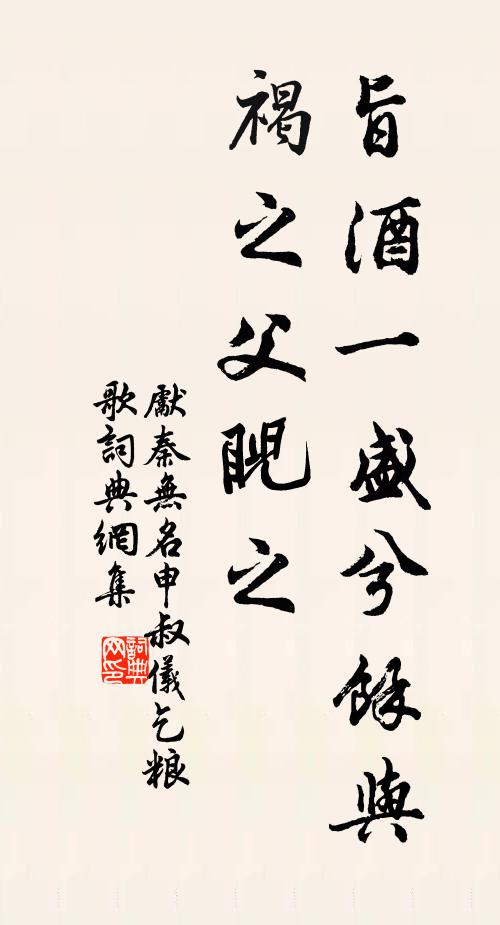 旨酒一盛兮餘與
褐之父睨之
獻秦無名申叔儀乞粮
歌詞典網集
詞典
网印